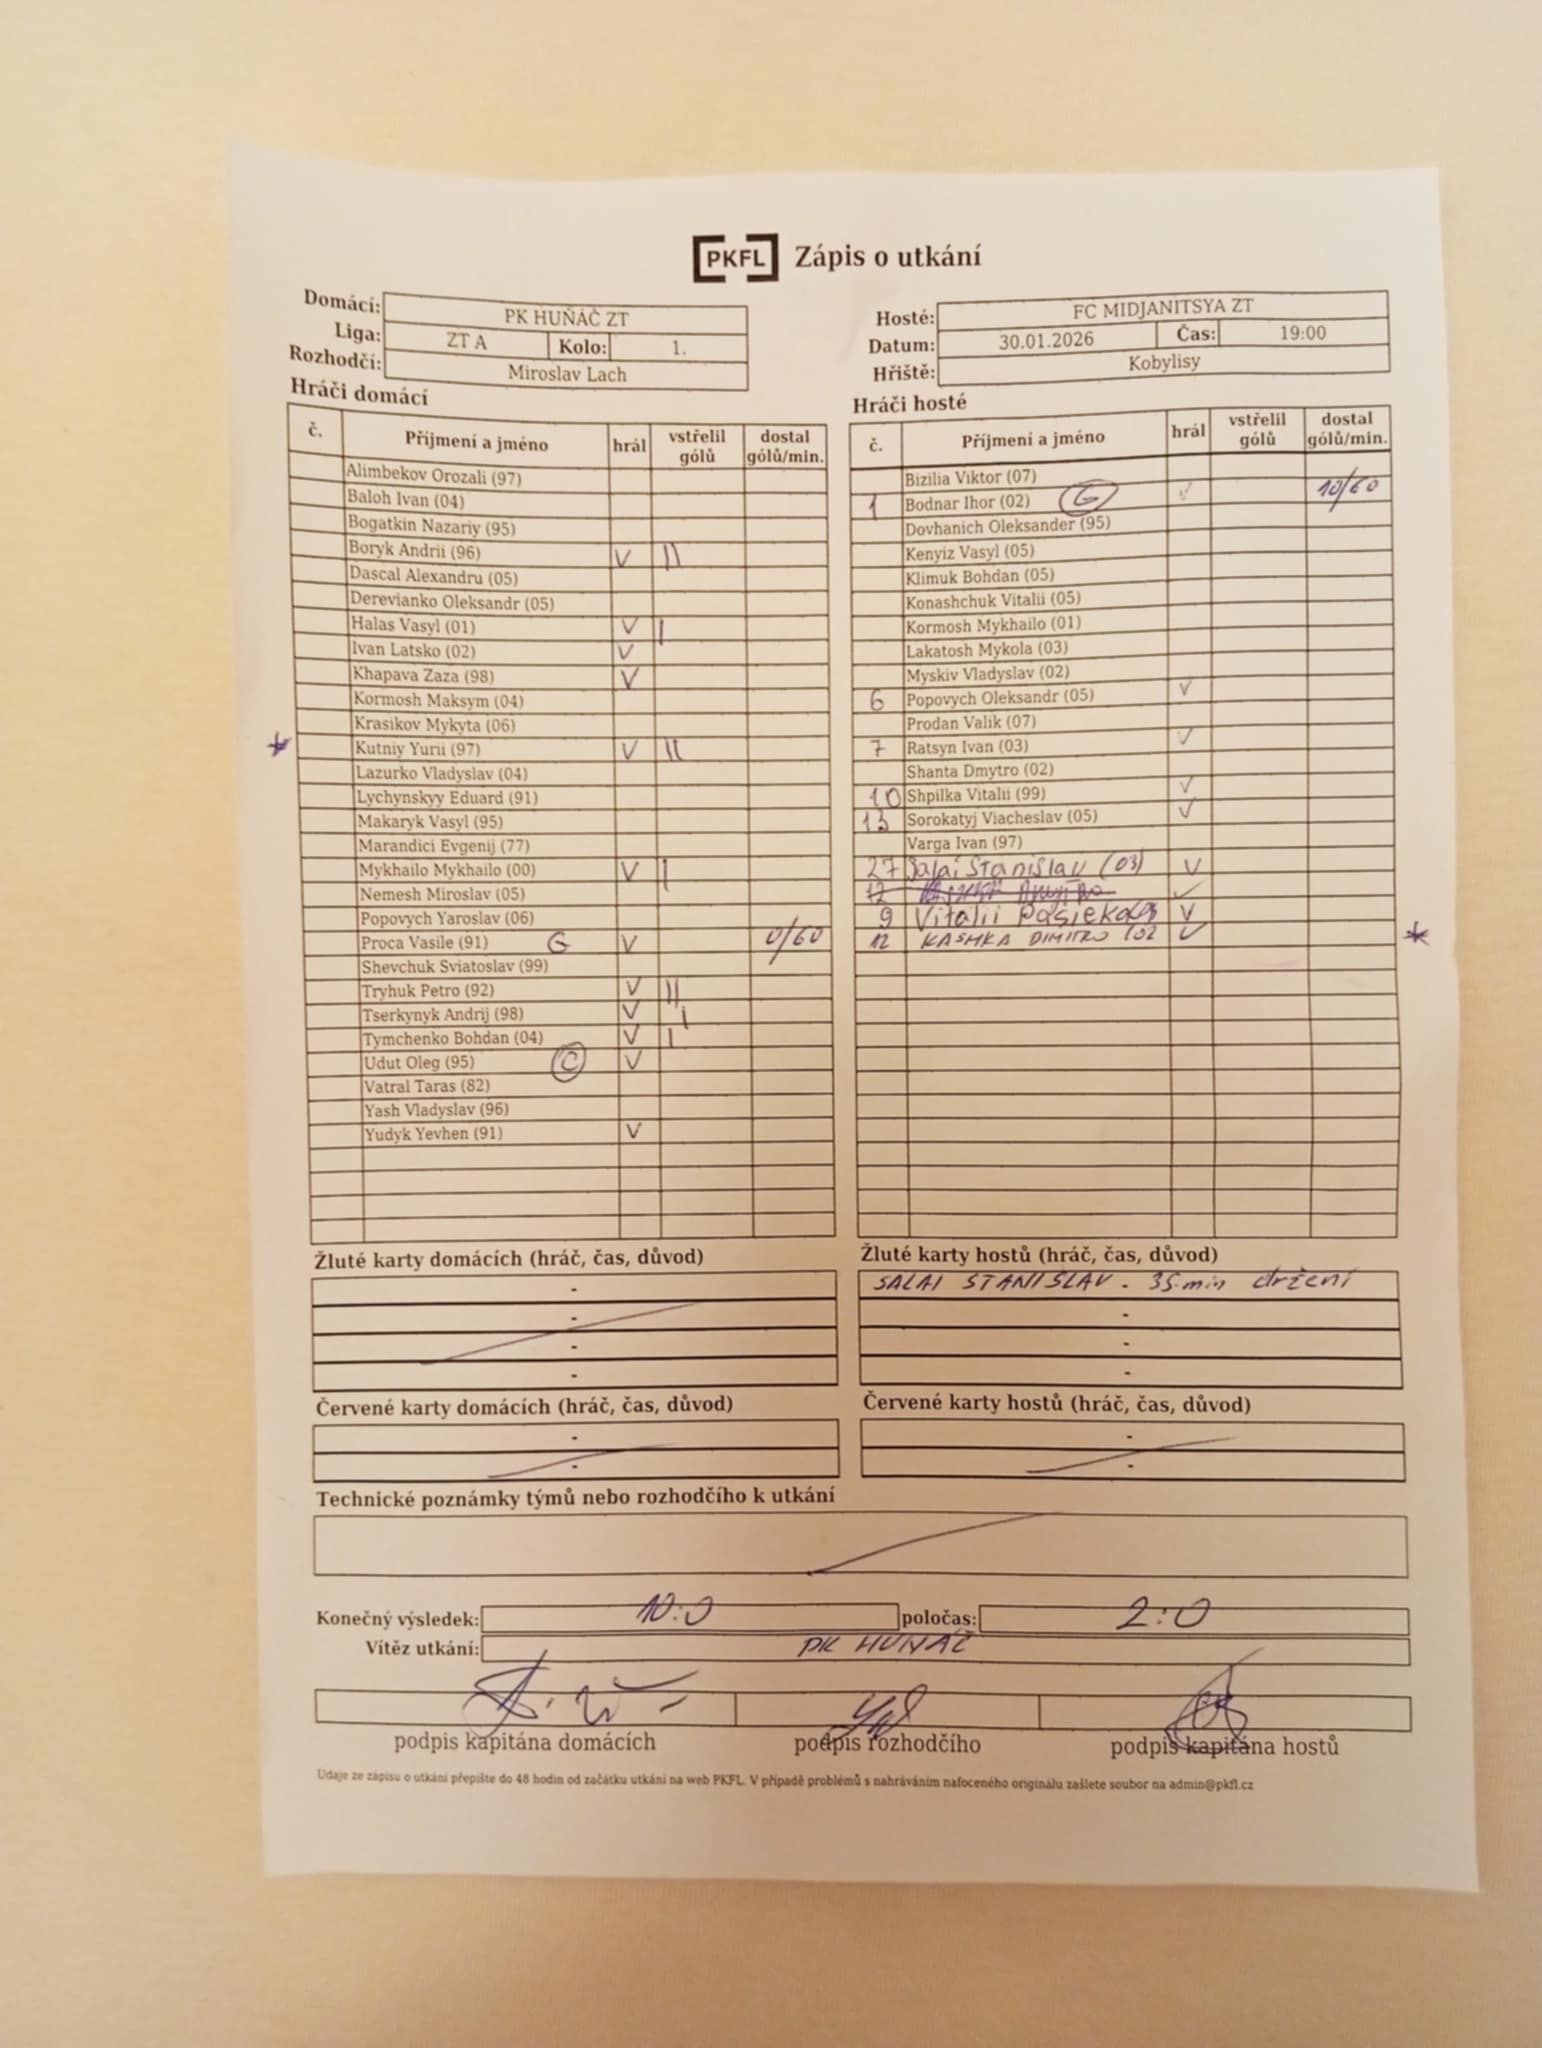 PKFL Zápis o utkání
Domácí: PK HUŇÁČ ZT
Liga: ZT A Kolo: 1.
Rozhodčí: Miroslav Lach
Hosté: FC MIDJANITSYA ZT
Datum: 30.01.2026 Čas: 19:00
Hřiště: Kobylisy
Hráči domácí
č. Příjmení a jméno hrál vstřelil gólů dostal gólů/min.
Alimbekov Orozali (97)
Baloh Ivan (04)
Bogatkin Nazariy (95)
Boryk Andrii (96) V ||
Dascal Alexandru (05)
Derevianko Oleksandr (05)
Halas Vasyl (01) V |
Ivan Latsko (02) V
Khapava Zaza (98) V
Kormosh Maksym (04)
Krasikov Mykyta (06)
* Kutniy Yurii (97) V ||
Lazurko Vladyslav (04)
Lychynskyy Eduard (91)
Makaryk Vasyl (95)
Marandici Evgenij (77)
Mykhailo Mykhailo (00) V |
Nemesh Miroslav (05)
Popovych Yaroslav (06)
Proca Vasile (91) G V 0/60
Shevchuk Sviatoslav (99)
Tryhuk Petro (92) V ||
Tserkynyk Andrij (98) V |
Tymchenko Bohdan (04) V |
Udut Oleg (95) C V
Vatral Taras (82)
Yash Vladyslav (96)
Yudyk Yevhen (91) V
Hráči hosté
č. Příjmení a jméno hrál vstřelil gólů dostal gólů/min.
Bizilia Viktor (07)
1 Bodnar Ihor (02) G V 10/60
Dovhanich Oleksander (95)
Kenyiz Vasyl (05)
Klimuk Bohdan (05)
Konashchuk Vitalii (05)
Kormosh Mykhailo (01)
Lakatosh Mykola (03)
Myskiv Vladyslav (02)
6 Popovych Oleksandr (05) V
Prodan Valik (07)
7 Ratsyn Ivan (03) V
Shanta Dmytro (02)
10 Shpilka Vitalii (99) V
13 Sorokatyj Viacheslav (05) V
Varga Ivan (97)
27 Salai Stanislav (03) V
12 V
9 Vitalii Pasieka V
12 KASHKA DIMITRO (02 V *
Žluté karty domácích (hráč, čas, důvod)
-
-
-
-
Žluté karty hostů (hráč, čas, důvod)
SALAI STANISLAV - 35.min držení
-
-
-
Červené karty domácích (hráč, čas, důvod)
-
-
Červené karty hostů (hráč, čas, důvod)
-
-
Technické poznámky týmů nebo rozhodčího k utkání
Konečný výsledek: 10:0 poločas: 2:0
Vítěz utkání: PK HUŇÁČ
podpis kapitána domácích podpis rozhodčího podpis kapitána hostů
Údaje ze zápisu o utkání přepište do 48 hodin od začátku utkání na web PKFL. V případě problémů s nahráváním nafoceného originálu zašlete soubor na admin@pkfl.cz